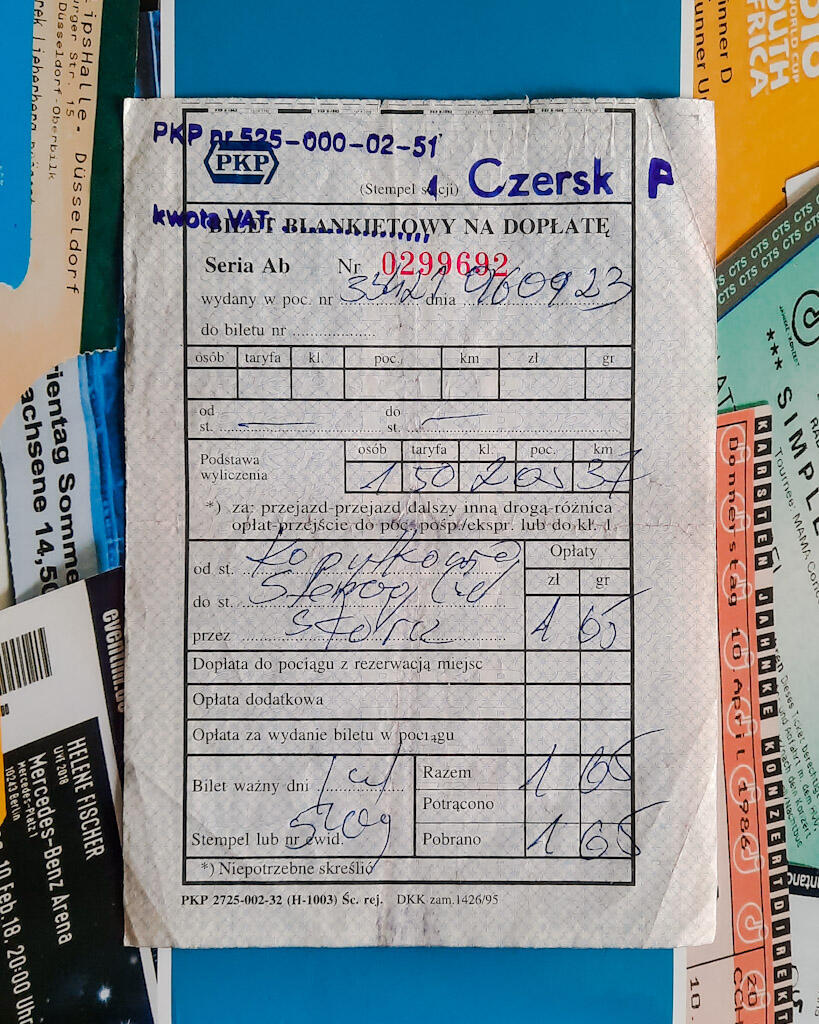 PKP nr 525-000-02-51
PKP
(Stempel stacji) Czersk P
kwota VAT
BILET BLANKIETOWY NA DOPŁATĘ
Seria Ab Nr 0299692
wydany w poc. nr 33421 dnia 960923
do biletu nr
osób taryfa kl. poc. km zł gr
od st. do st.
osób taryfa kl. poc. km
Podstawa wyliczenia 1 50 2 os 37
*) za: przejazd-przejazd dalszy inną drogą-różnica
opłat-przejście do poc. pośp./ekspr. lub do kl. 1
Opłaty
od st. zł gr
do st.
przez 1 65
Dopłata do pociągu z rezerwacją miejsc
Opłata dodatkowa
Opłata za wydanie biletu w pociągu
Bilet ważny dni
Razem 1 65
Potrącono
Stempel lub nr ewid.
Pobrano 1 65
*) Niepotrzebne skreślić
PKP 2725-002-32 (H-1003) Śc. rej. DKK zam.1426/95
ipsHalle - Düsseldorf
urger Str. 15
Düsseldorf-Oberbilk
ientag Somme
achsene 14,50
eventim.de
HELENE FISCHER
LIVE 2018
Mercedes-Benz Arena
Mercedes-Platz 1
10243 Berlin
10 Feb. 18, 20:00 Uhr
WORLD CUP
SOUTH
AFRICA
CTS CTS CTS CTS CTS
*** SIMPLE
KARSTEN JAHNKE KONZERTDIREKT
Donnerstag 10 April 1986